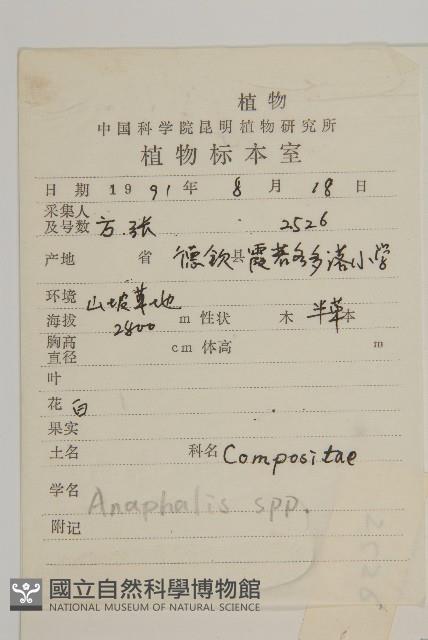 植物
中国科学院昆明植物研究所
植物标本室
日期 1991年 8月 18日
采集人
及号数 方.张 2526
产地 省 德钦县霞若各多落小学
环境 山坡草地
海拔 2800 m 性状 木 半草本
胸高
直径 cm 体高 m
叶
花 白
果实
土名 科名 Compositae
学名 Anaphalis spp.
附记
2526
國立自然科學博物館
NATIONAL MUSEUM OF NATURAL SCIENCE